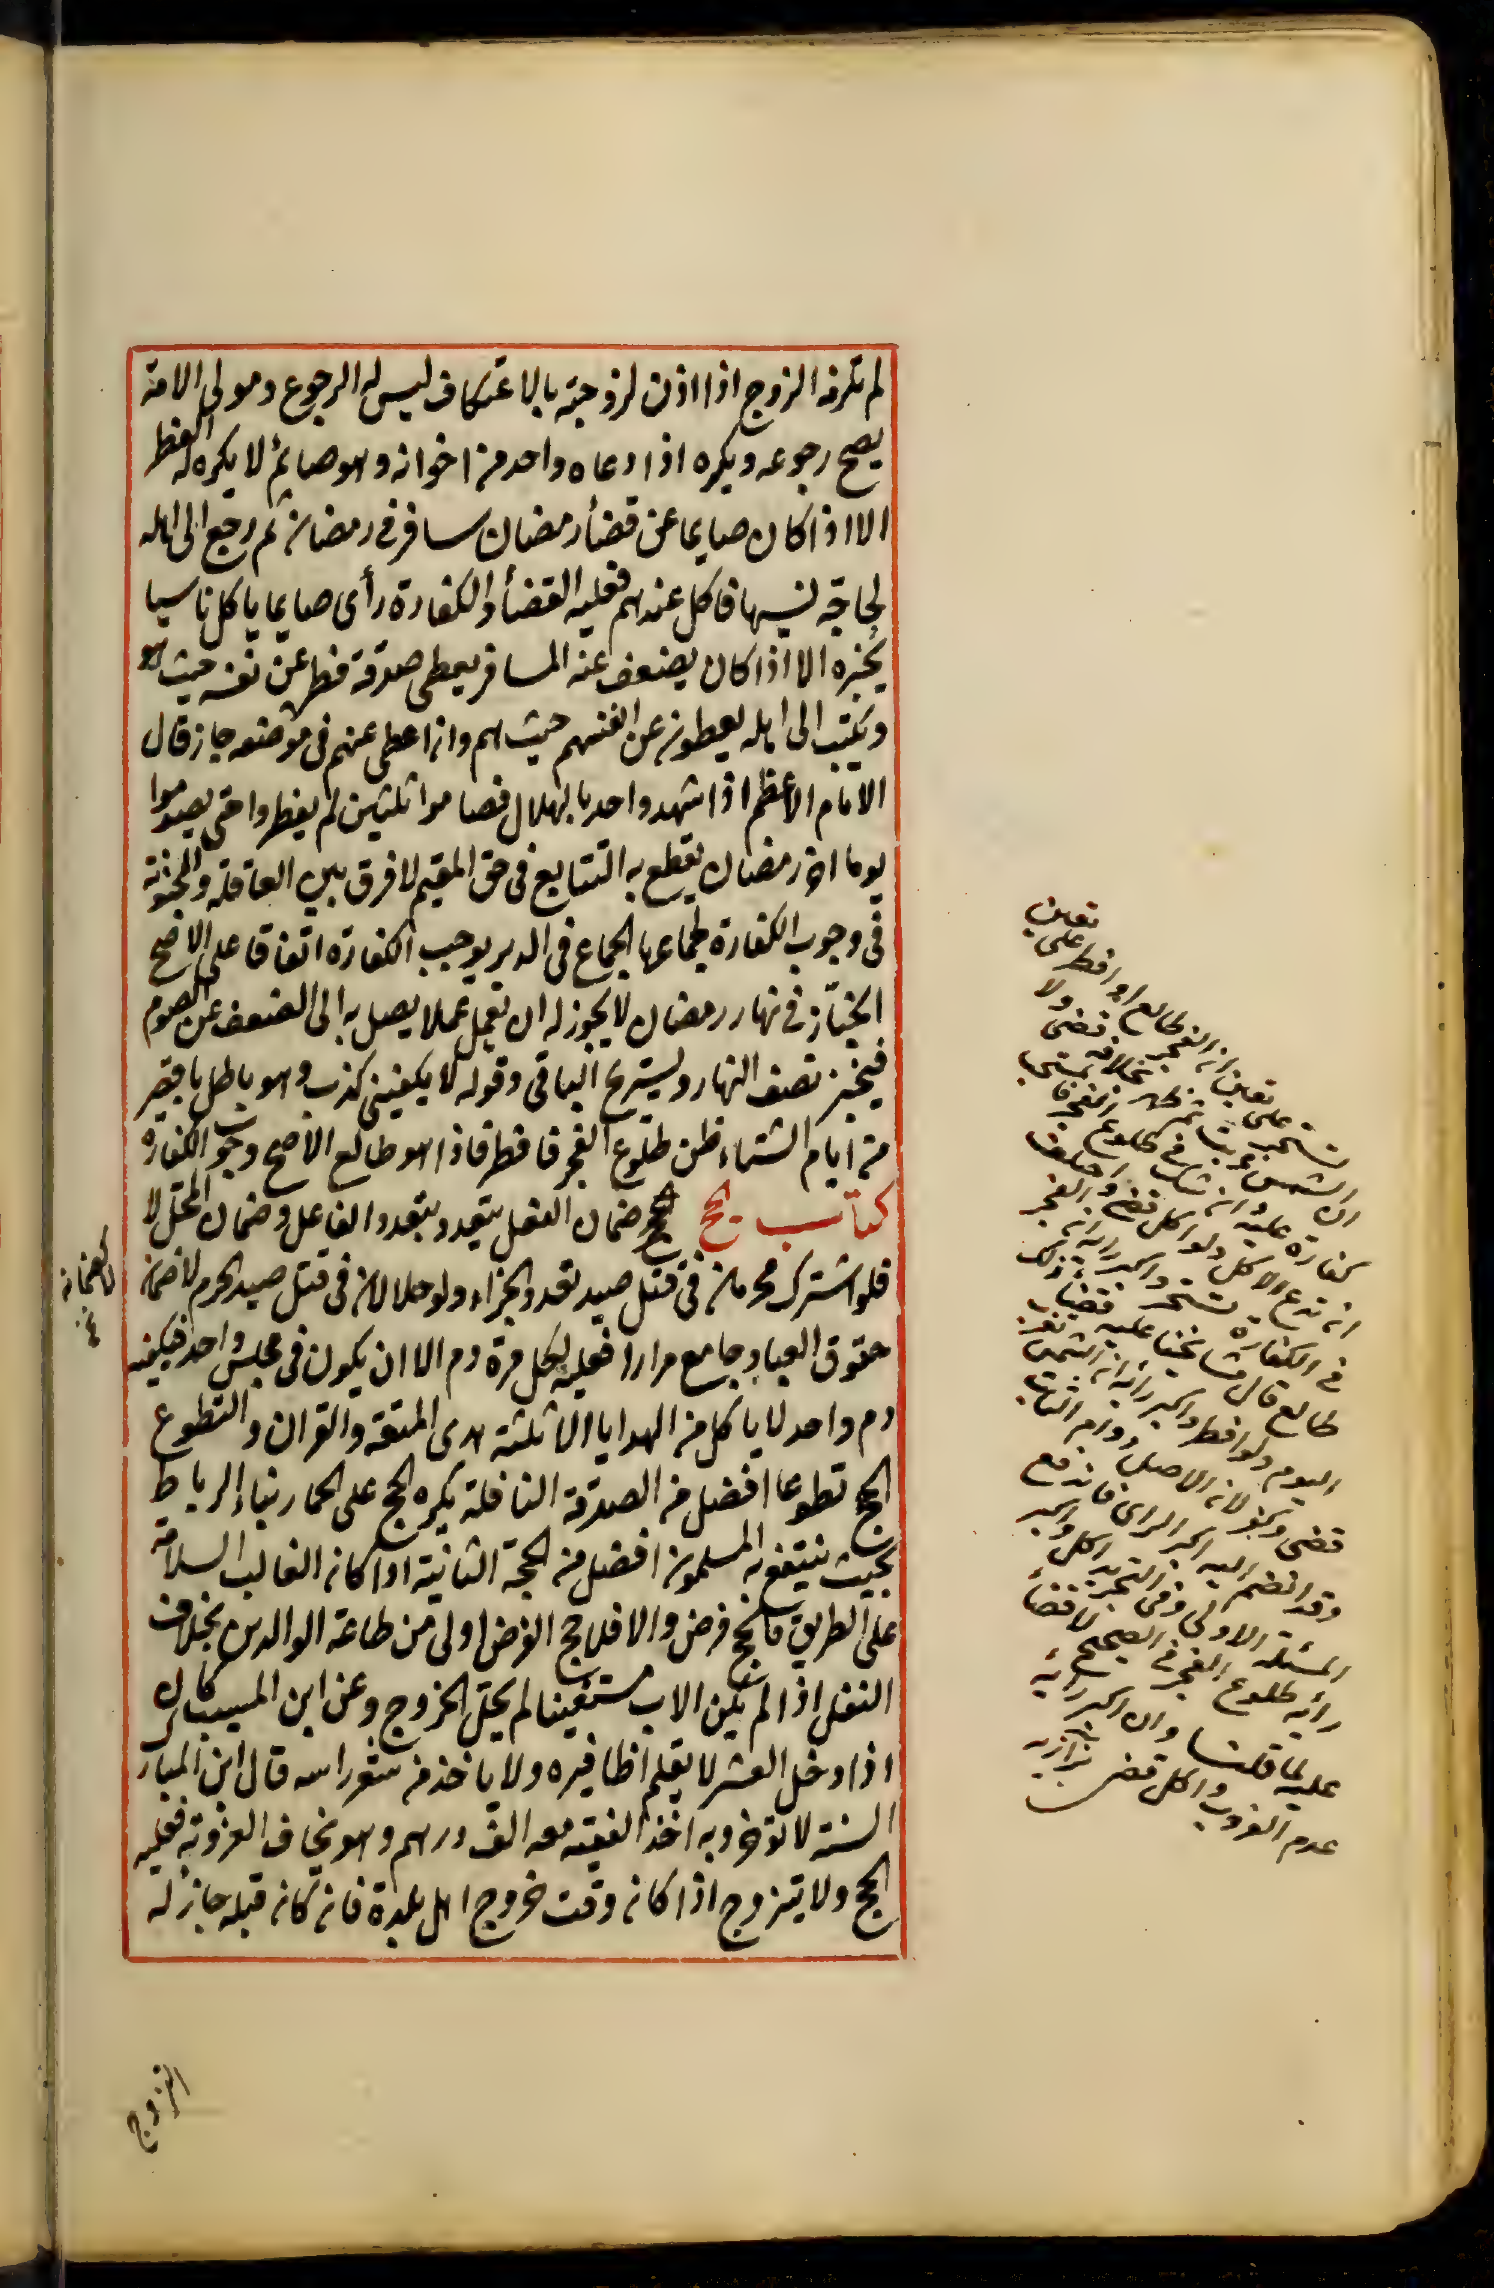 لم تلزمه الزوج اذا اذن لزوجته بالاعتكاف ليس له الرجوع ومولى الامة
يصح رجوعه ويكره اذا دعاه واحد من اخوانه وهو صائم لا يكره له الفطر
الا اذا كان صايما عن قضأ رمضان سافر فى رمضان ثم رجع الى اهله
لحاجة نسيها فاكل عندهم فعليه القضأ والكفارة رأى صايما ياكل ناسيا
يخبره الا اذا كان يضعف عنه المسافر يعطى صدقة فطره عن نفسه حيث هو
ويكتب الى اهله يعطون عن انفسهم حيث هم وان اعطى عنهم فى موضعه جاز قال
الامام الاعظم اذا شهد واحد بالهلال فصاموا ثلثين لم يفطروا حتى يصوموا
يوما اخر رمضان يقطع به التتابع فى حق المقيم لا فرق بين العاقلة والمجنونة
فى وجوب الكفارة بجماعها الجماع فى الدبر يوجب الكفارة اتفاقا على الاصح
الخبّاز فى نهار رمضان لا يجوز له ان يعمل عملا يصل به الى الضعف عن الصوم
فيخبز نصف النهار ويستريح الباقى وقوله لا يكفينى كذب وهو باطل باقصر
من ايام الشتاء ظن طلوع الفجر فافطر فاذا هو طالع الاصح وجوب الكفارة
كتاب الحج ضمان الفعل يتعدد بتعدد الفاعل وضمان المحل لا
فلو اشترك محرمان فى قتل صيد تعدد الجزاء ولو حلالان فى قتل صيد الحرم لا ضمان
حقوق العباد جامع مرارا فعليه لكل مرة دم الا ان يكون فى مجلس واحد فيكفيه
دم واحد لا ياكل من الهدايا الا ثلثة هدى المتعة والقران والتطوع
الحج تطوعا افضل من الصدقة النافلة يكره الحج على الحمار بناء الرباط
بحيث ينتفع به المسلمون افضل من الحجة الثانية اذا كان الغالب السلامة
على الطريق فالحج فرض والا فلا حج الفرض اولى من طاعة الوالدين بخلاف
النفل اذا لم يكن الاب مستغنيا لم يحل الخروج وعن ابن المسيب كان
اذا دخل العشر لا يقلم اظافيره ولا ياخذ من شعر راسه قال ابن المبارك
السنة لا تؤخر وبه اخذ الفقيه معه الف درهم وهو يخاف العزوبة فعليه
الحج ولا يتزوج اذا كان وقت خروج اهل بلدة فان كان قبله جاز له
التزوج
كضمان
تعين
على تعين ان الفجر طالع او افطر على
ان الشمس غربت ثم ظهر بخلافه قضى ولا
كفارة عليه ان شك فى طلوع الفجر فالمستحب
ان يدع الاكل ولو اكل فصومه واختلف
فى الكفارة تسحر واكبر رأيه ان الفجر
طالع قال مشايخنا عليه قضاء ذلك
اليوم ولو افطر واكبر رأيه ان الشمس لم تغرب
قضى وكفر لان الاصل دوام الثابت
وقد انضم اليه اكبر الراى فاندفع
المسئلة الاولى وفى التجريد اكل واكبر
رأيه طلوع الفجر فى الصحيح لا قضاء
عليه لما قلنا وان اكبر رأيه
عدم الغروب واكل قضى بزازيه